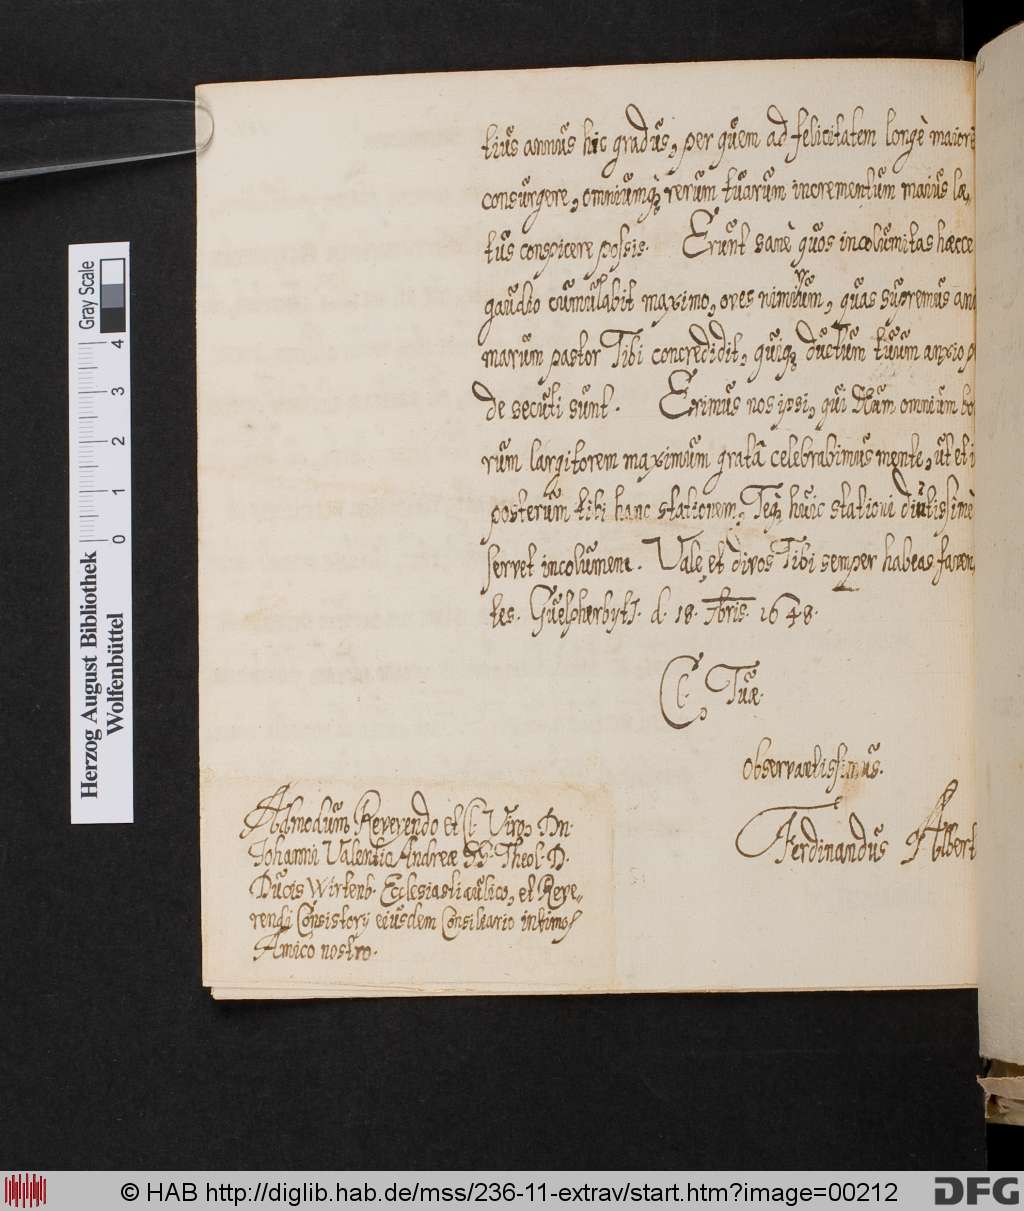 tius annus hic gradus, per quem ad felicitatem longè maiorē
consurgere, omniumq; rerum tuarum incrementum maius læ,
tus conspicere possis. Erunt sanè quos incolumitas hæcce
gaudio cumulabit maximo, oves nimirum, quas supremus ani
marum pastor Tibi concredidit, quiq; ductum tuum anxio
de secuti sunt. Erimus nos ipsi, qui omnium bo
rum largitorem maximum gratâ celebrabimus mente, ut et i
posterum tibi hanc stationem, Teq; huic stationi diutissimè
servet incolumem. Vale et divos Tibi semper habeas faven
tes. Guelpherbyti. d. 18. 7bris. 1648.
Cl. Tuæ.
Observantissimus.
Ferdinandus Albert
Admodum Reverendo et Cl. Viro, Dn.
Johanni Valentio Andreæ SS. Theol. D.
Ducis Wirtenb. Ecclesiasti aulico, et Reve-
rendi Consistorij eiusdem Consiliario intimo,
Amico nostro.
Herzog August Bibliothek
Wolfenbüttel
0 1 2 3 4
Gray Scale
© HAB http://diglib.hab.de/mss/236-11-extrav/start.htm?image=00212
DFG